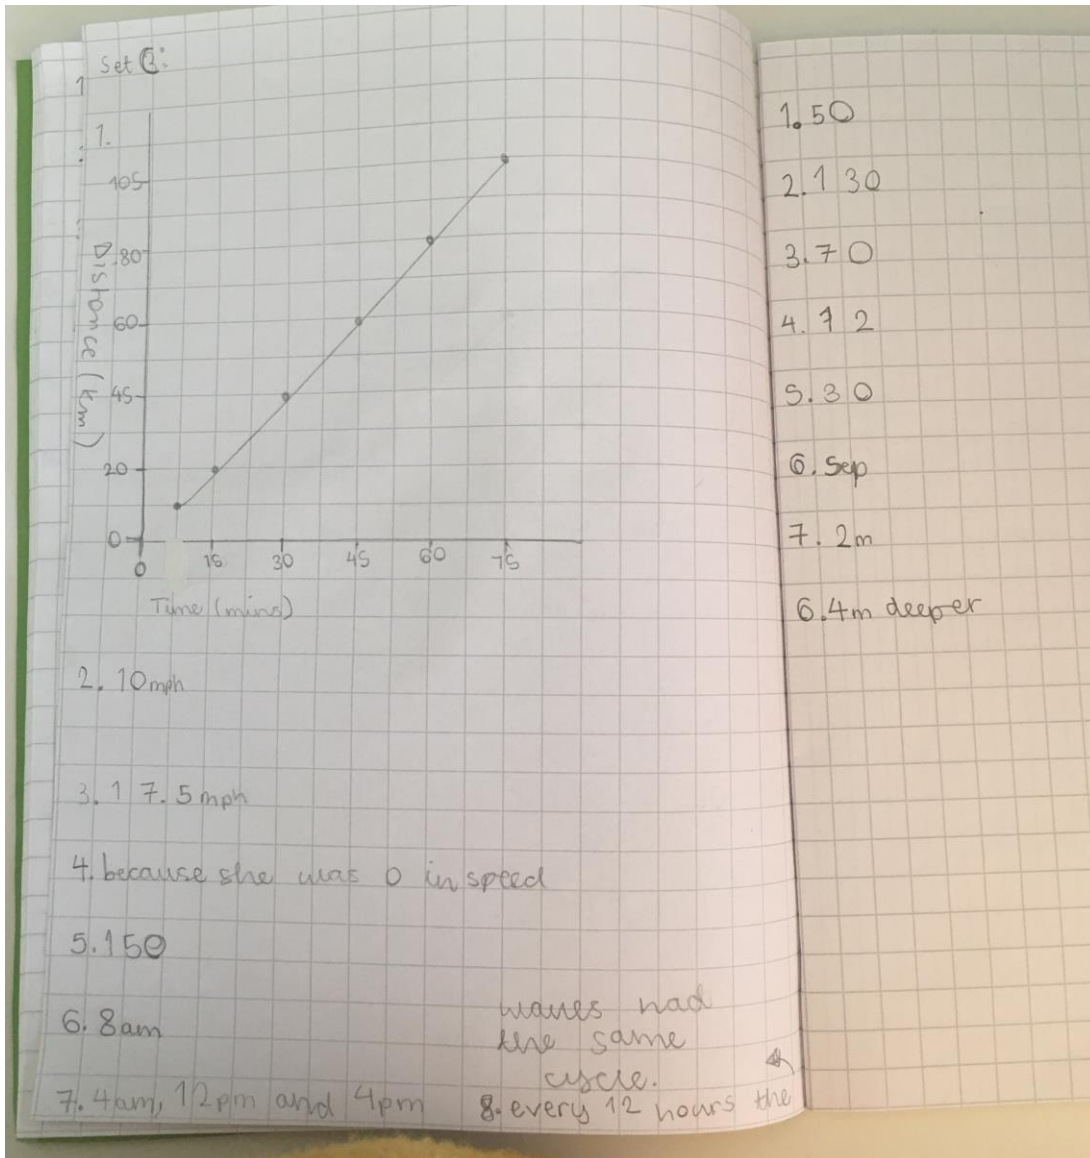 Set B:
1
1.
105
80
60
45
20
0
Distance (km)
0 15 30 45 60 75
Time (mins)
2. 10mph
3. 17.5mph
4. because she was 0 in speed
5. 150
6. 8am
7. 4am, 12pm and 4pm
8. every 12 hours the
waves had
the same
cycle.
1. 50
2. 130
3. 70
4. 12
5. 30
6. Sep
7. 2m
6. 4m deeper